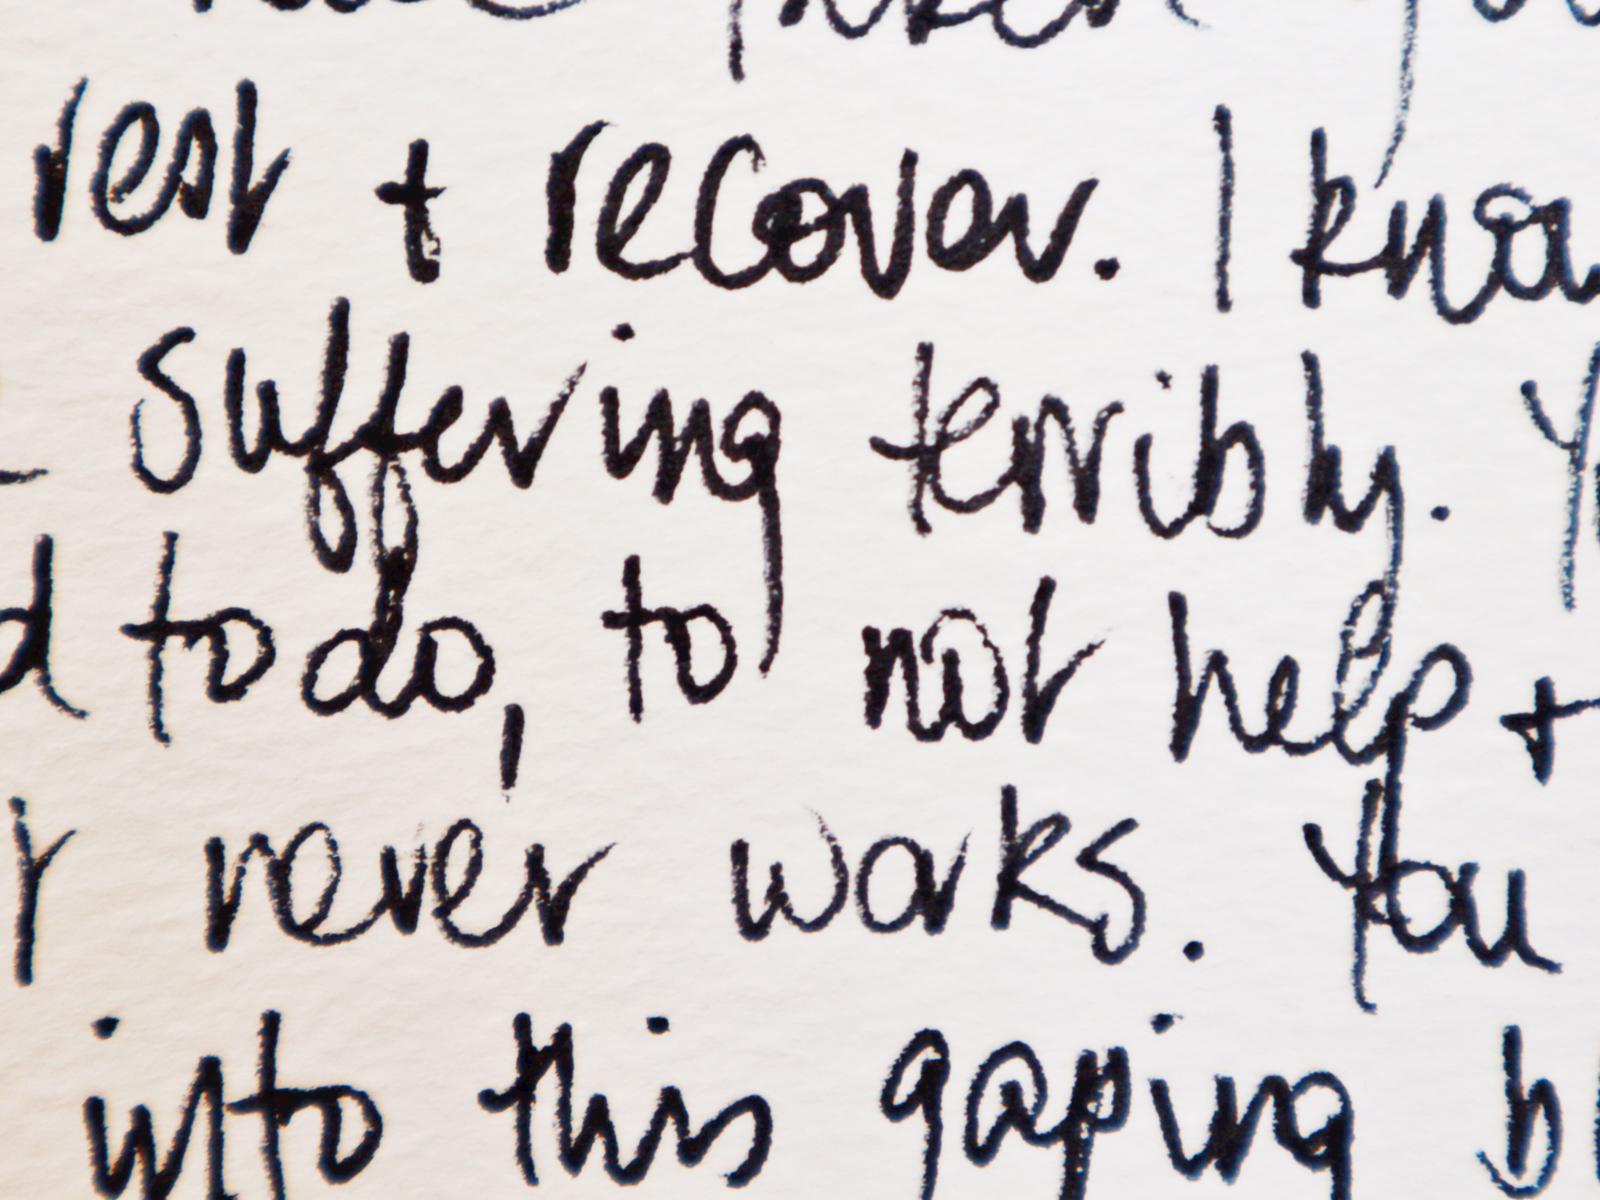 taken
rest + recover. I know
suffering terribly.
to do, to not help +
never works. You
into this gaping